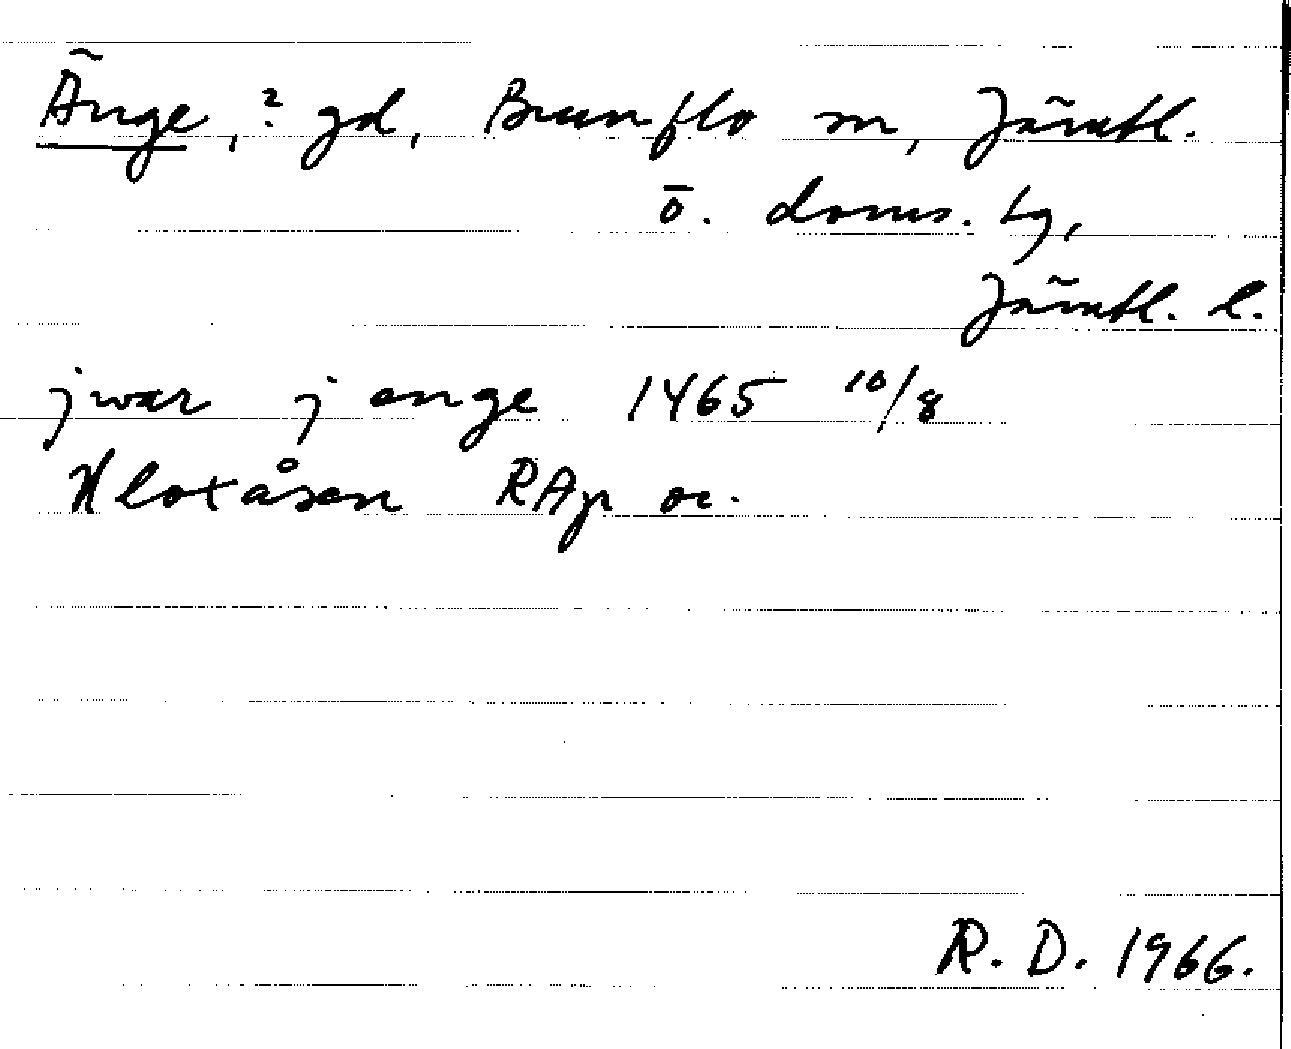 Änge, ? gd, Brunflo sn, Jämtl.
ö. doms. tg,
Jämtl. l.
jwar j ange 1465 10/8
Kloxåsen RAp or.
R. D. 1966.